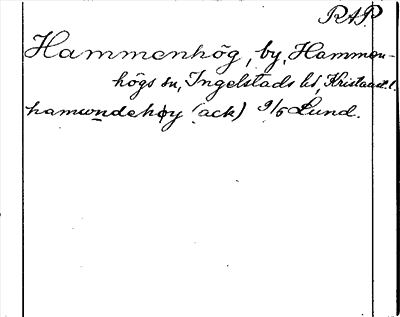 RAP
Hammenhög, by, Hammen-
högs sn, Ingelstads hd, Kristianst. l.
hamundehøy (ack) 9/5 Lund.